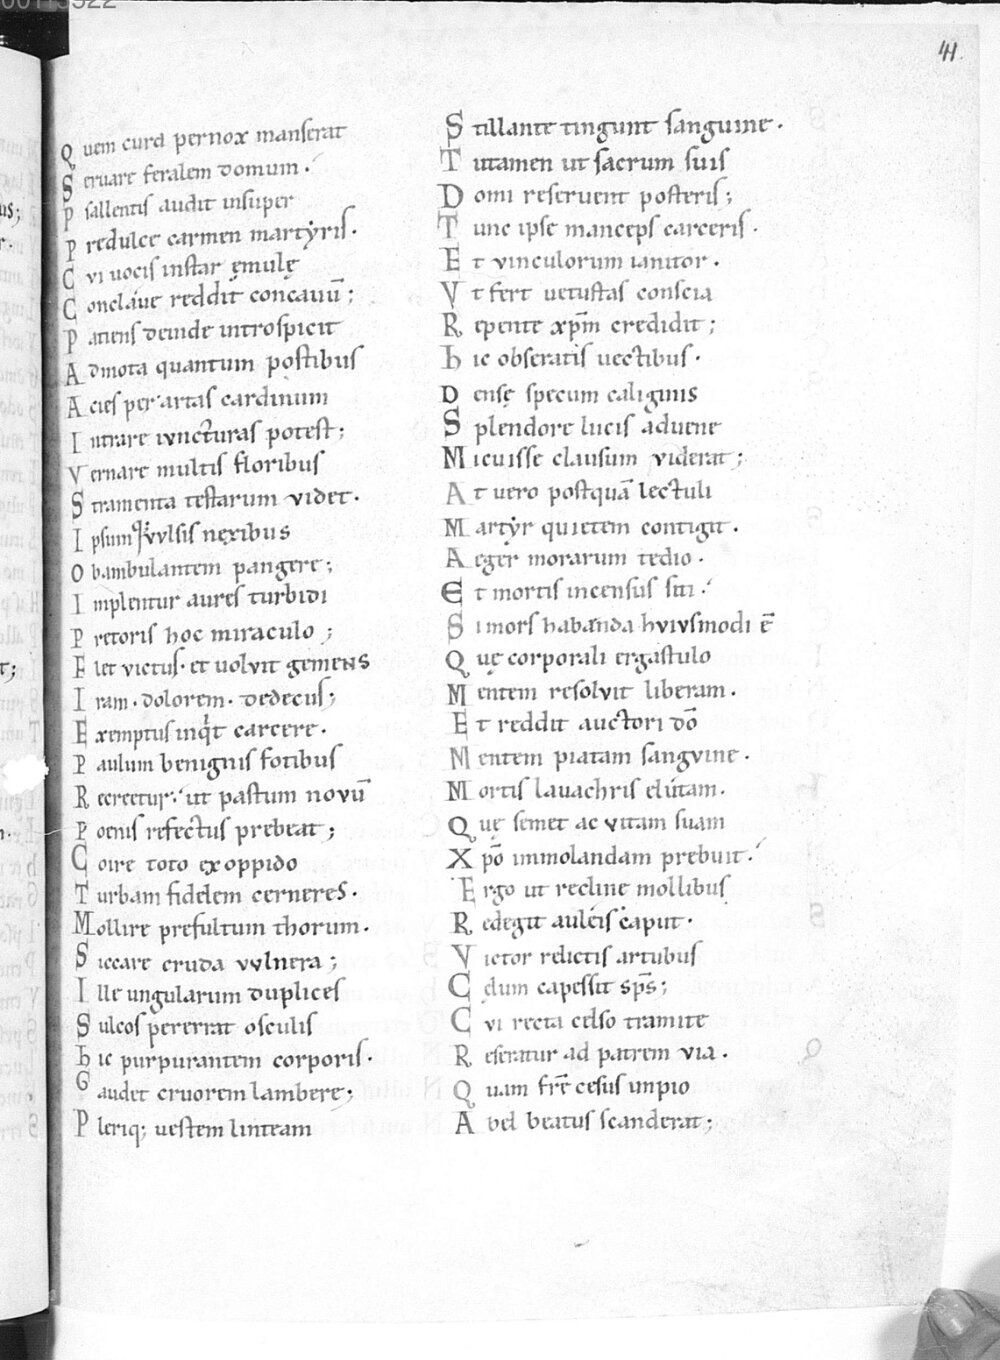 00113322
41.
Quem cura pernox manserat
Seruare feralem domum.
Psallentis audit insuper
Predulce carmen martyris.
Cvi uocis instar ęmulę
Conclaue reddit concauū;
Patiens deinde introspicit
Admota quantum postibus
Acies per artas cardinum
Intrare iuncturas potest;
Vernare multis floribus
Stramenta testarum videt.
Ipsumq; vvlsis nexibus
Obambulantem pangere;
Implentur aures turbidi
Pretoris hoc miraculo;
Flet victus. et uoluit gemens
Iram. dolorem. dedecus;
Exemptus inqͥt carcere.
Paulum benignis fotibus
Recreetur. ut pastum novū
Poenis refectus prebeat;
Coire toto ex oppido
Turbam fidelem cerneres.
Mollire prefultum thorum.
Siccare cruda vvlnera;
Ille ungularum duplices
Sulcos pererrat osculis
Hic purpurantem corporis.
Gaudet cruorem lambere;
Pleriq; uestem linteam
Stillante tingunt sanguine.
Tutamen ut sacrum suis
Domi reseruent posteris;
Tunc ipse manceps carceris.
Et vinculorum ianitor.
Vt fert uetustas conscia
Repente xp̄m credidit;
Hic obseratis uectibus.
Densę specum caliginis
Splendore lucis aduene
Micuisse clausum viderat;
At uero postquā lectuli
Martyr quietem contigit.
Aeger morarum tedio.
Et mortis incensus siti.
Si mors habanda hvivsmodi ē
Quę corporali ergastulo
Mentem resolvit liberam.
Et reddit auctori dō
Mentem piatam sangvine.
Mortis lauachris elutam.
Quę semet ac vitam suam
Xpō immolandam prebuit.
Ergo ut recline mollibus
Redegit auleis caput.
Victor relictis artubus
Cęlum capessit sp̄s;
Cvi recta celso tramite
Reseratur ad patrem via.
Quam frē cesus impio
Abel beatus scanderat;